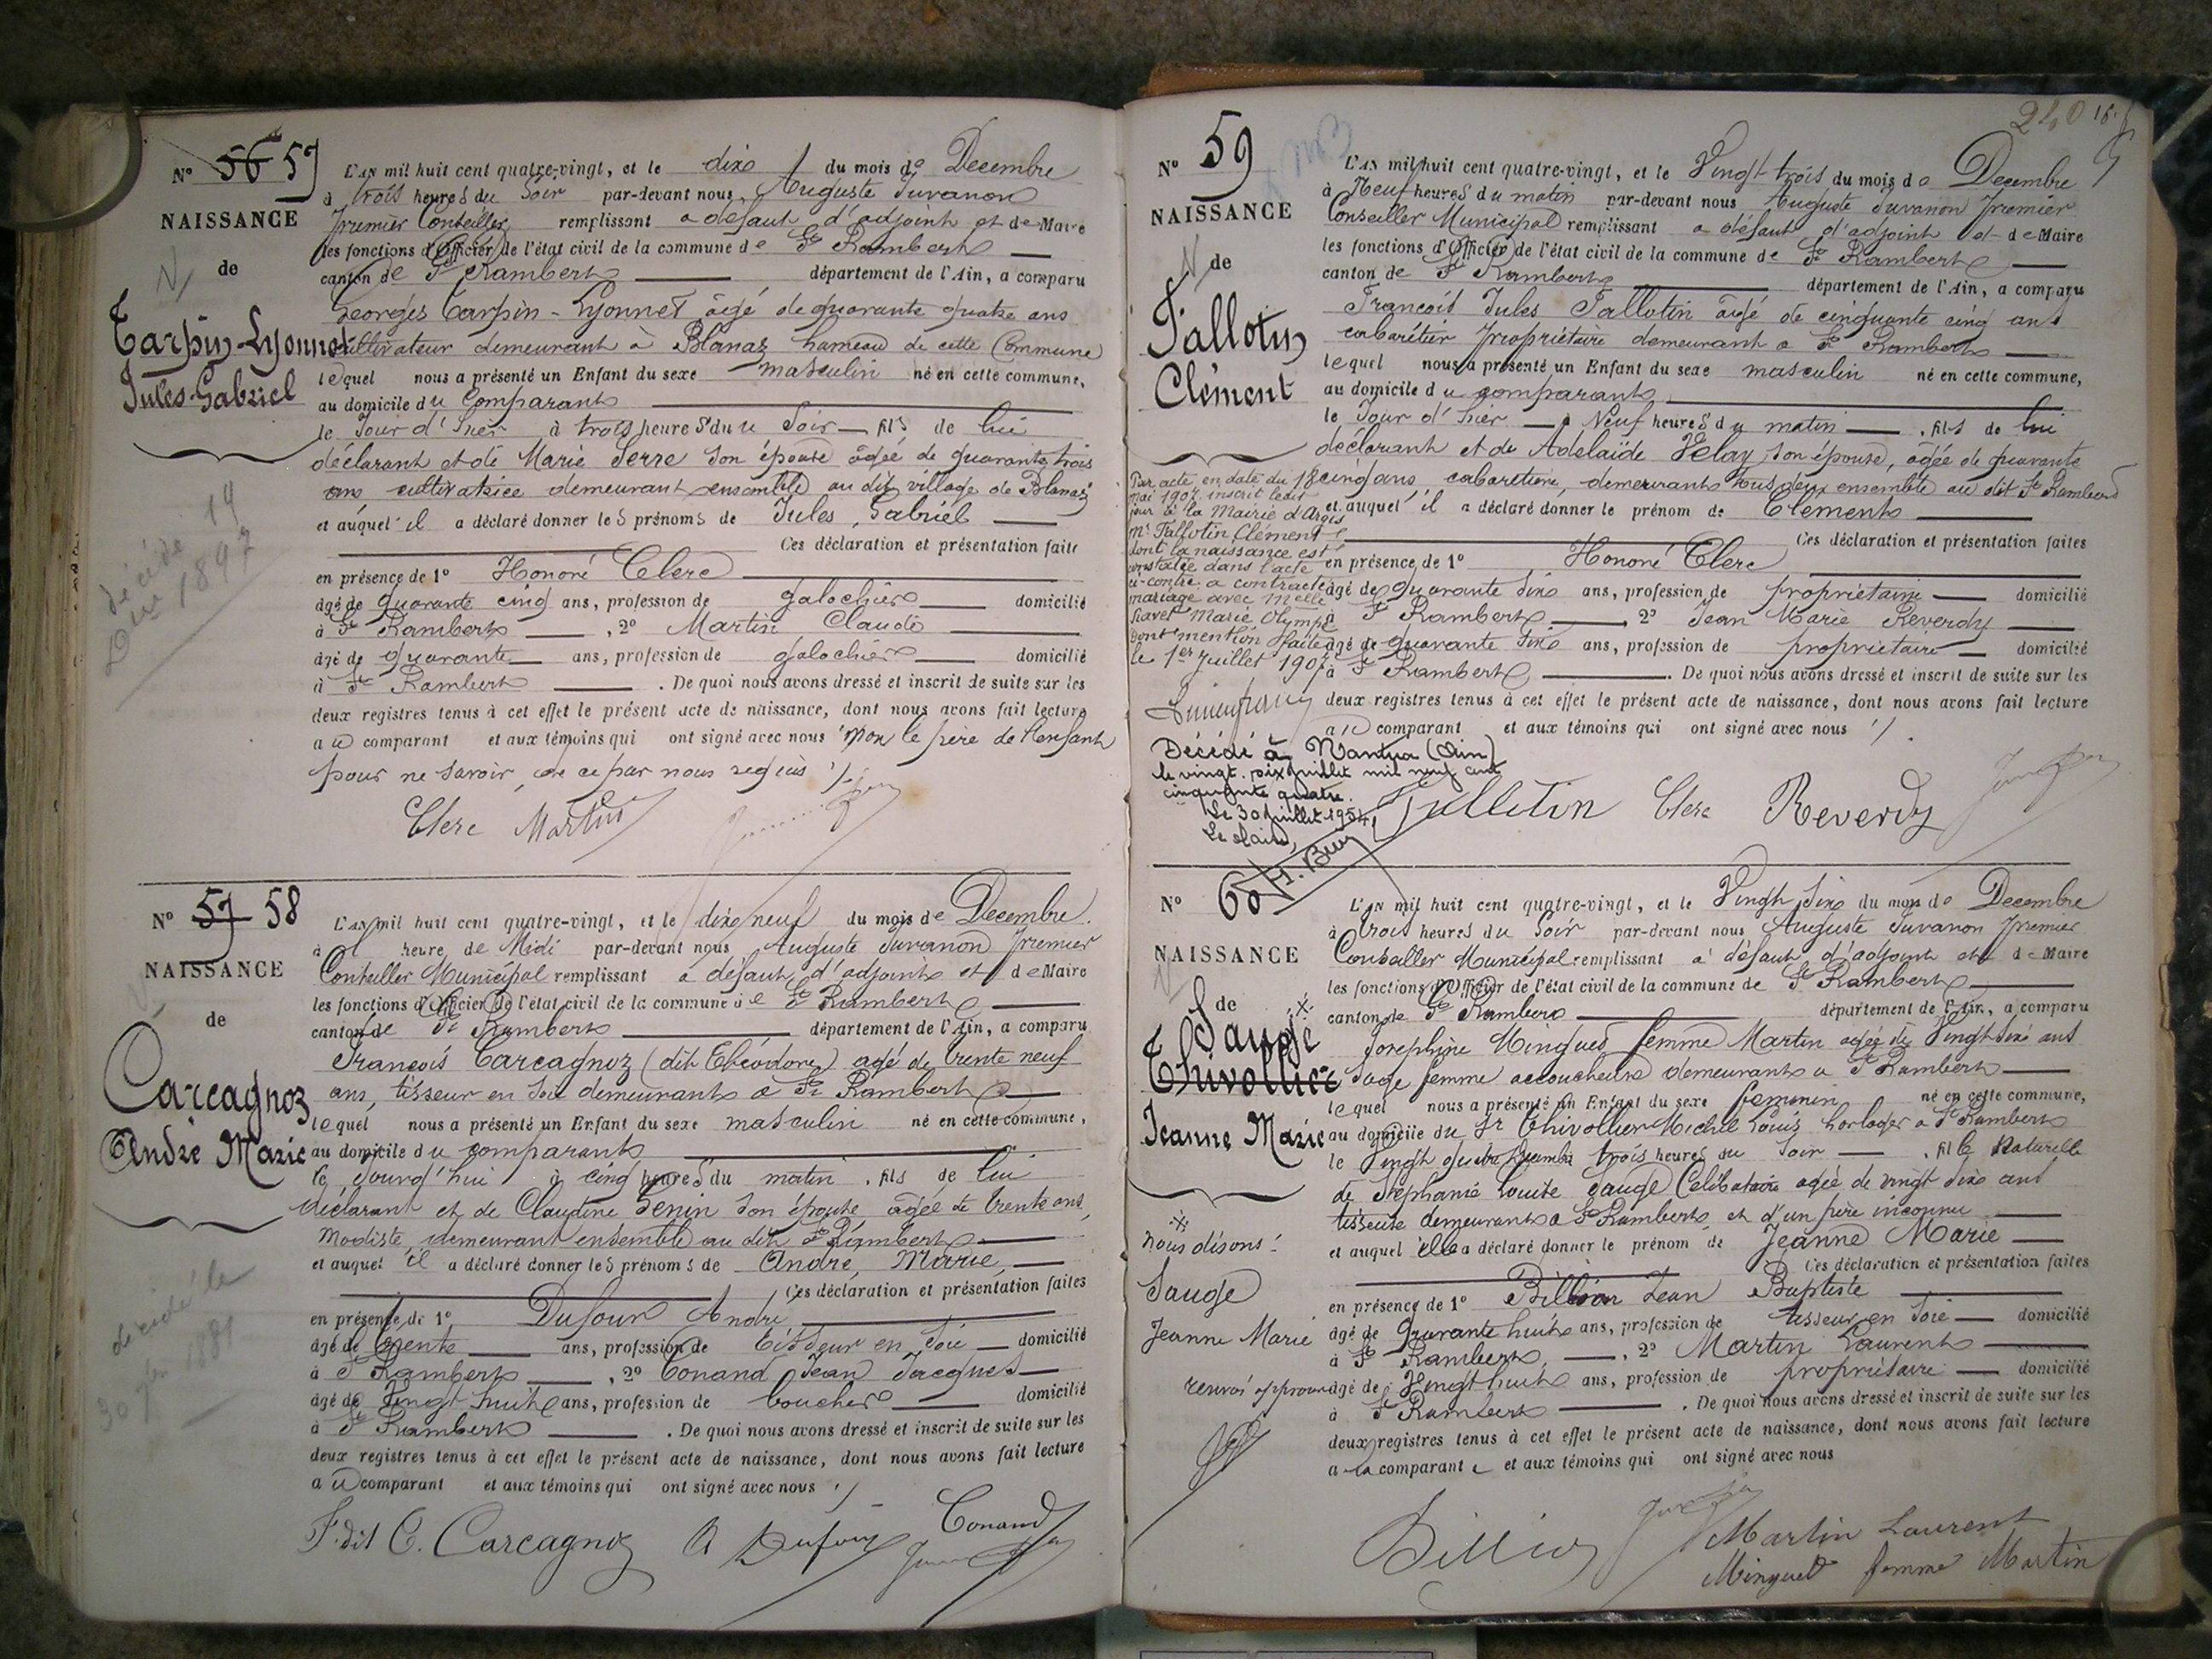 N° 56 57
NAISSANCE
de
Tarpin-Lyonnet
Jules-Gabriel
décidé 14
1897
L'AN mil huit cent quatre-vingt, et le dix du mois de Decembre
à trois heures du Soir par-devant nous, Auguste Juvanon
premier Conseiller remplissant a defaut d'adjoint et de Maire
les fonctions d'Officier de l'état civil de la commune de St Rambert
canton de St Rambert département de l'Ain, a comparu
Georges Tarpin-Lyonnet âgé de quarante quatre ans
cultivateur demeurant à Blanaz hameau de cette Commune
lequel nous a présenté un Enfant du sexe masculin né en cette commune,
au domicile du Comparant
le Jour d'hier à trois heures du Soir fils de lui
déclarant et de Marie Serre son épouse âgée de quarante trois
ans cultivatrice demeurant ensemble au dit village de Blanaz
et auquel il a déclaré donner les prénoms de Jules, Gabriel
Ces déclaration et présentation faite
en présence de 1° Honoré Clerc
âgé de quarante cinq ans, profession de galochier domicilié
à St Rambert , 2° Martin Claude
âgé de quarante ans, profession de galochier domicilié
à St Rambert . De quoi nous avons dressé et inscrit de suite sur les
deux registres tenus à cet effet le présent acte de naissance, dont nous avons fait lecture
au comparant et aux témoins qui ont signé avec nous non le père de l'enfant
pour ne savoir, de ce par nous requis
Clerc Martin
N° 57 58
NAISSANCE
de
Carcagnoz
André Marie
décidé le
30 1881
L'AN mil huit cent quatre-vingt, et le dix neuf du mois de Decembre
à l heure de Midi par-devant nous Auguste Juvanon premier
Conseiller Municipal remplissant a défaut d'adjoint et de Maire
les fonctions d'Officier de l'état civil de la commune de St Rambert
canton de St Rambert département de l'Ain, a comparu
François Carcagnoz (dit Théodore) agé de trente neuf
ans, tisseur en soie demeurant a St Rambert
lequel nous a présenté un Enfant du sexe masculin né en cette commune,
au domicile du comparant
le Jourd'hui à cinq heures du matin, fils de lui
déclarant et de Claudine Genin son épouse âgée de trente ans,
Modiste, demeurant ensemble au dit St Rambert
et auquel il a déclaré donner les prénoms de André, Marie,
Ces déclaration et présentation faites
en présence de 1° Dufour André
âgé de trente ans, profession de tisseur en Soie domicilié
à St Rambert , 2° Conand Jean Jacques
âgé de Vingt huit ans, profession de boucher domicilié
à St Rambert . De quoi nous avons dressé et inscrit de suite sur les
deux registres tenus à cet effet le présent acte de naissance, dont nous avons fait lecture
au comparant et aux témoins qui ont signé avec nous
F. dit T. Carcagnoz A Dufour Conand
240
N° 59
NAISSANCE
de
Tallotin
Clément
Par acte en date du 18
mai 1907 inscrit ledit
jour à la Mairie d'Argis
Mr Tallotin Clément
dont la naissance est
constatée dans l'acte
ci-contre a contracté
mariage avec Melle
Ravet Marie Olympe
dont mention faite
le 1er Juillet 1907
Décédé à Nantua (Ain)
le vingt-six juillet mil neuf cent
cinquante quatre.
Le 30 juillet 1954,
Le Maire,
L'AN mil huit cent quatre-vingt, et le Vingt trois du mois de Decembre
à Neuf heures du matin par-devant nous Auguste Juvanon premier
Conseiller Municipal remplissant a défaut d'adjoint et de Maire
les fonctions d'Officier de l'état civil de la commune de St Rambert
canton de St Rambert département de l'Ain, a comparu
François Jules Tallotin âgé de cinquante cinq ans
cabarétier propriétaire demeurant a St Rambert
lequel nous a présenté un Enfant du sexe masculin né en cette commune,
au domicile du comparant
le Jour d'hier à Neuf heures du matin , fils de lui
déclarant et de Adelaïde Velay, son épouse, âgée de quarante
cinq ans cabaretière, demeurant tous deux ensemble au dit St Rambert
et auquel il a déclaré donner le prénom de Clément
Ces déclaration et présentation faites
en présence de 1° Honoré Clerc
âgé de quarante six ans, profession de propriétaire domicilié
à St Rambert , 2° Jean Marie Reverdy
âgé de quarante six ans, profession de propriétaire domicilié
à St Rambert . De quoi nous avons dressé et inscrit de suite sur les
deux registres tenus à cet effet le présent acte de naissance, dont nous avons fait lecture
au comparant et aux témoins qui ont signé avec nous
Tallotin Clerc Reverdy
N° 60
NAISSANCE
de
Sauge
Thivollier
Jeanne Marie
nous disons:
Sauge
Jeanne Marie
renvoi approuvé
L'AN mil huit cent quatre-vingt, et le Vingt Six du mois de Decembre
à trois heures du Soir par-devant nous Auguste Juvanon premier
Conseiller Municipal remplissant a défaut d'adjoint et de Maire
les fonctions d'Officier de l'état civil de la commune de St Rambert
canton de St Rambert département de l'Ain, a comparu
Josephine Minguet femme Martin agée de Vingt six ans
Sage femme accoucheuse demeurant a St Rambert
lequel nous a présenté un Enfant du sexe feminin né en cette commune,
au domicile du Sr Thivollier Michel Louis horloger a St Rambert
le Vingt quatre trois heures du Soir , fille Naturelle
de Stephanie Louise Sauge Célibataire agée de vingt six ans
tisseuse demeurant a St Rambert et d'un père inconnu
et auquel elle a déclaré donner le prénom de Jeanne Marie
Ces déclaration et présentation faites
en présence de 1° Billion Jean Baptiste
âgé de Quarante huit ans, profession de tisseur en Soie domicilié
à St Rambert, , 2° Martin Laurent
âgé de Vingt huit ans, profession de propriétaire domicilié
à St Rambert . De quoi nous avons dressé et inscrit de suite sur les
deux registres tenus à cet effet le présent acte de naissance, dont nous avons fait lecture
a la comparante et aux témoins qui ont signé avec nous
Billion Martin Laurent
Minguet femme Martin